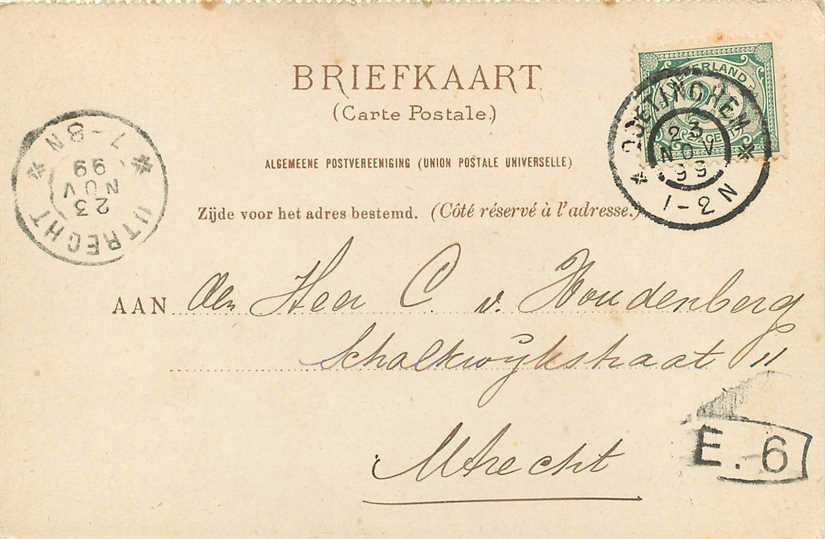 BRIEFKAART
(Carte Postale.)
ALGEMEENE POSTVEREENIGING (UNION POSTALE UNIVERSELLE)
Zijde voor het adres bestemd. (Côté réservé à l'adresse.)
AAN den Heer C. v. Woudenberg
Schalkwijkstraat 11
Utrecht
NEDERLAND
DOETINCHEM
23
NOV
99
1-2N
UTRECHT
23
NOV
99
7-8N
E. 6